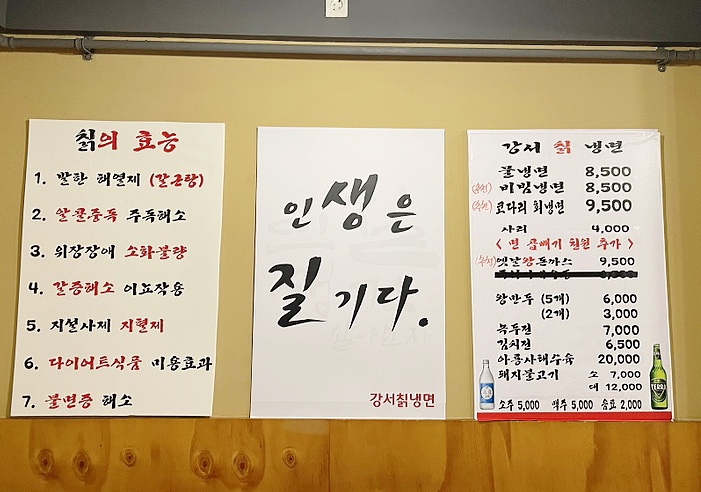 칡의 효능
1. 발한 해열제 (갈근탕)
2. 알콜중독 주독해소
3. 위장장애 소화불량
4. 갈증해소 이뇨작용
5. 지설사제 지혈제
6. 다이어트식품 미용효과
7. 불면증 해소
인생은
질기다.
강서칡냉면
강서 칡 냉면
물냉면 8,500
비빔냉면 8,500
코다리 회냉면 9,500
사리 4,000
< 면 곱빼기 천원 추가 >
옛날왕돈까스 9,500
왕만두 (5개) 6,000
(2개) 3,000
녹두전 7,000
김치전 6,500
아롱사태수육 20,000
돼지불고기 소 7,000
대 12,000
소주 5,000 맥주 5,000 음료 2,000
TERRA